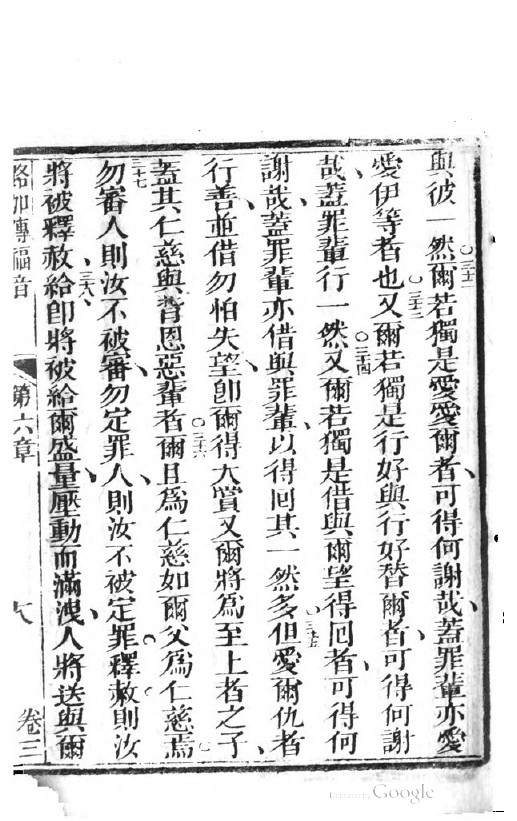 與彼一然○三十二爾若獨是愛愛爾者、可得何謝哉、蓋罪輩亦愛
愛伊等者也○三十三又爾若獨是行好與行好替爾者、可得何謝
哉、蓋罪輩行一然○三十四又爾若獨是借與爾望得囘者、可得何
謝哉、蓋罪輩亦借與罪輩、以得囘其一然多○三十五但愛爾仇者
行善、並借勿怕失望、卽爾得大賞又爾將爲至上者之子、
蓋其仁慈與背恩惡輩者○三十六爾且爲仁慈如爾父爲仁慈焉○
三十七勿審人則汝不被審、勿定罪人、則汝不被定罪○釋赦則汝
將被釋赦、三十八給卽將被給爾盛量、壓動而滿洩、人將送與爾
路加傳福音 第六章 卷三
Google